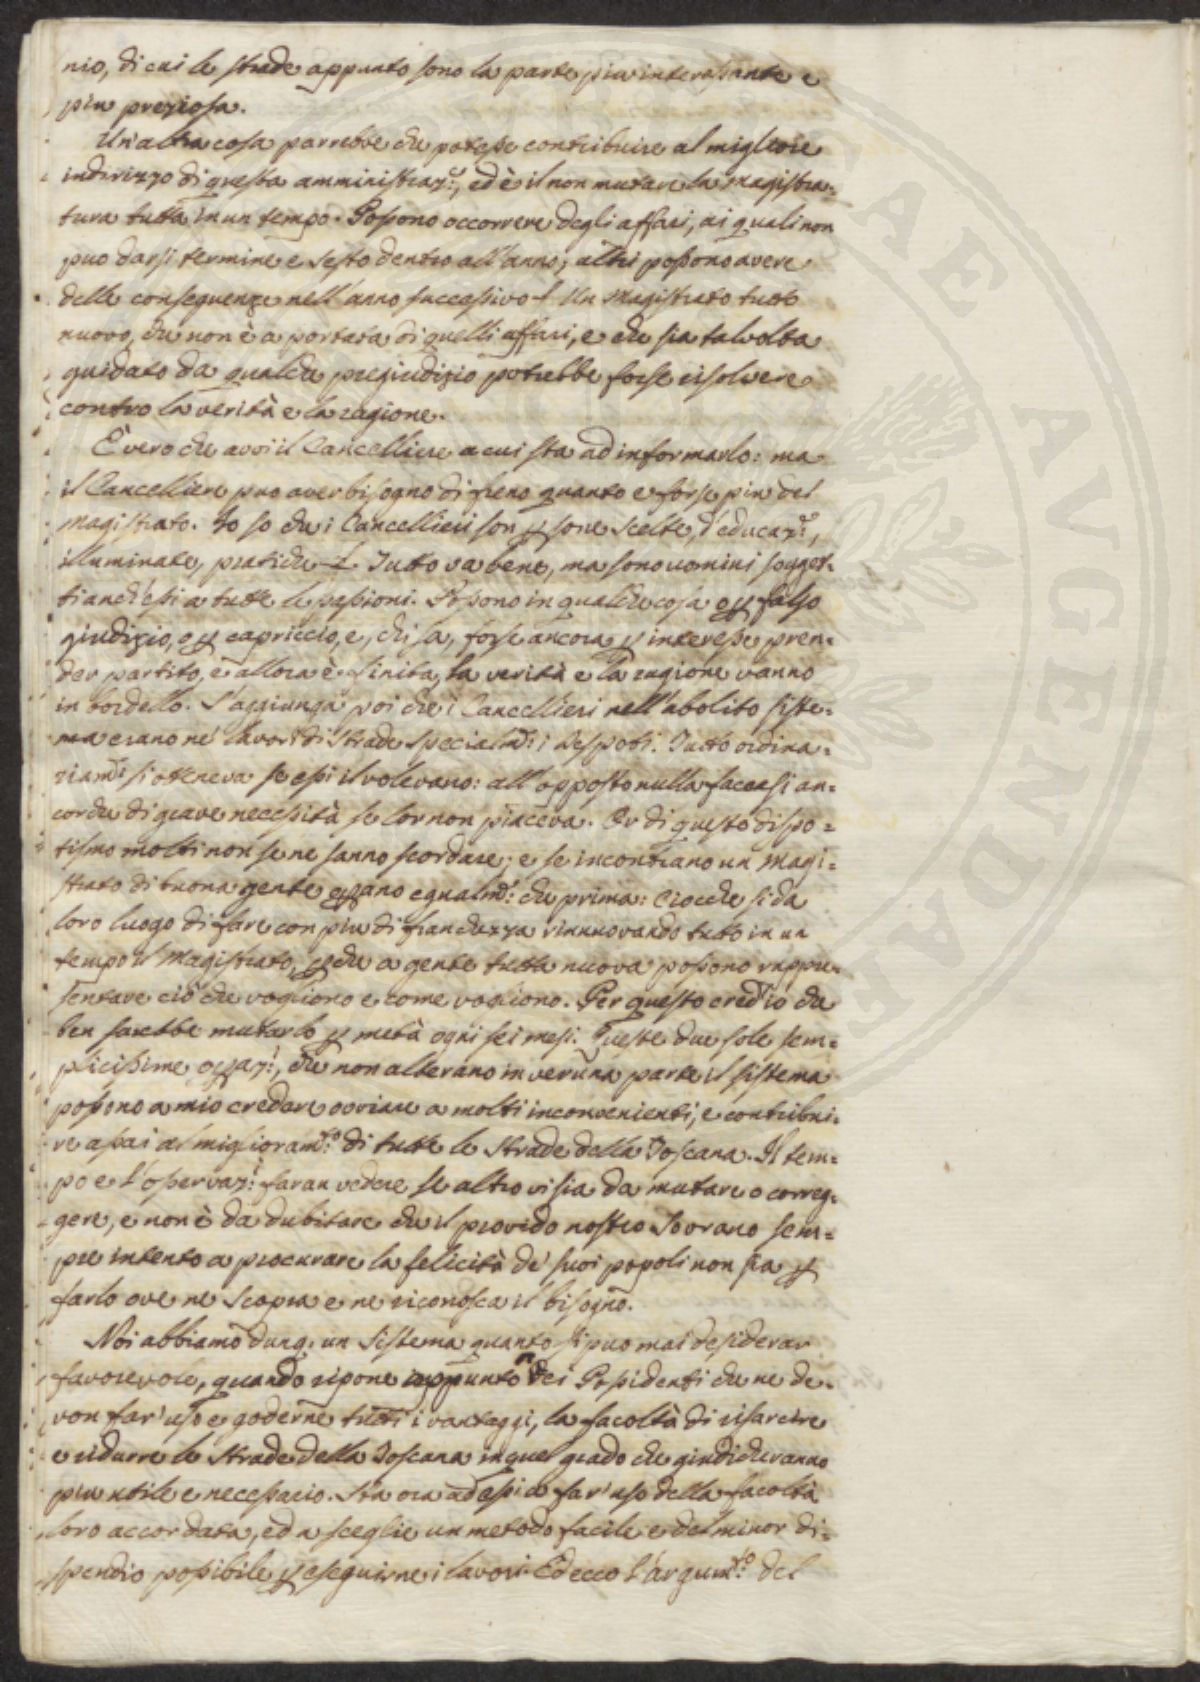 nio, di cui le strade appunto sono la parte piu interessante e
piu preziosa.
Un'altra cosa parrebbe che potesse contribuire al migliore
indirizzo di questa amministraz.e, ed è il non mutare la Magistra=
tura tutta in un tempo. Possono occorrere degli affari, ai quali non
puo darsi termine e sesto dentro all'anno; altri possono avere
delle conseguenze nell'anno successivo. Un Magistrato tutto
nuovo, che non è a portata di quelli affari, e che sia talvolta
guidato da qualche pregiudizio potrebbe forse risolvere
contro la verità e la ragione.
È vero che avvi il Cancelliere a cui sta ad informarlo: ma
il Cancelliere puo aver bisogno di freno quanto e forse piu del
Magistrato. Io so che i Cancellieri son psone scelte, d'educaz.e,
illuminate, pratiche. Tutto va bene, ma sono uomini sogget=
ti anch'essi a tutte le passioni. Possono in qualche cosa o p falso
giudizio, o p capriccio, e, chi sa, forse ancora p interesse pren=
der partito, e allora è finita, la verità e la ragione vanno
in bordello. S'aggiunga poi che i Cancellieri nell'abolito siste=
ma erano ne' lavori di strade specialm.e i despoti. Tutto ordina=
riam.e si otteneva se essi il volevano: all'opposto nulla faceasi an=
corche di grave necessità se lor non piaceva. Or di questo dispo=
tismo molti non se ne sanno scordare; e se incontrano un Magi=
strato di buona gente oprano egualm.e che prima: Ciocche si da
loro luogo di fare con piu di franchezza rinnuovando tutto in un
tempo il Magistrato, pche a gente tutta nuova possono rappre=
sentare ciò che vogliono e come vogliono. Per questo cred'io che
ben sarebbe mutarlo p metà ogni sei mesi. Queste due sole sem=
plicissime opraz.i, che non alterano in veruna parte il sistema
possono a mio credere ovviare a molti inconvenienti, e contribui=
re assai al miglioram.to di tutte le strade della Toscana. Il tem=
po e l'osservaz.e faran vedere se altro vi sia da mutare o correg=
gere, e non è da dubitare che il provido nostro Sovrano sem=
pre intento a procurare la felicità de' suoi popoli non sia p
farlo ove ne scopra e ne riconosca il bisogno.
Noi abbiamo dunq. un sistema quanto si puo mai desiderar
favorevole, quando ripone appunto nei Possidenti che ne de=
von far'uso e goderne tutti i vantaggi, la facoltà di risarcire
e ridurre le strade della Toscana in quel grado che giudicheranno
piu utile e necessario. Sta ora ad essi a far'uso della facoltà
loro accordata, ed a sceglie un metodo facile e del minor di=
spendio possibile p eseguirne i lavori. Ed ecco l'argum.to del